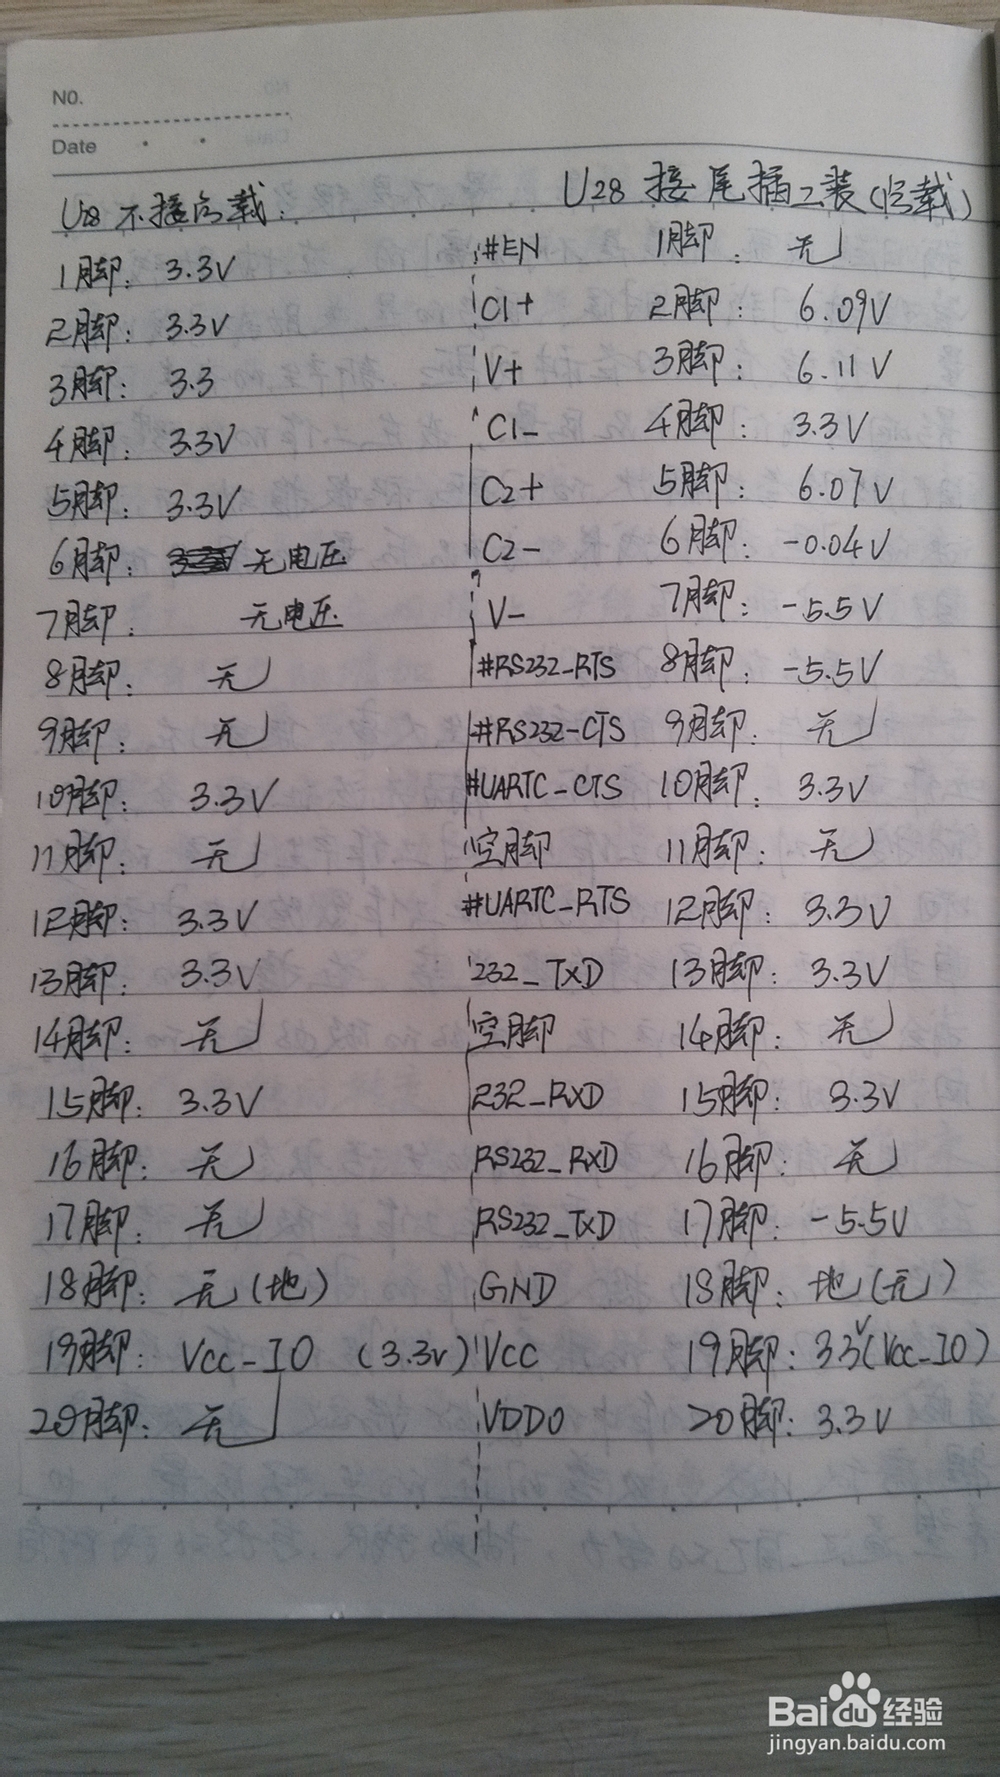 NO.
Date
U28 不接负载：
U28 接尾插工装(负载)
1脚：3.3V #EN 1脚：无
2脚：3.3V C1+ 2脚：6.09V
3脚：3.3 V+ 3脚：6.11V
4脚：3.3V C1- 4脚：3.3V
5脚：3.3V C2+ 5脚：6.07V
6脚：无电压 C2- 6脚：-0.04V
7脚：无电压 V- 7脚：-5.5V
8脚：无 #RS232_RTS 8脚：-5.5V
9脚：无 #RS232-CTS 9脚：无
10脚：3.3V #UARTC_CTS 10脚：3.3V
11脚：无 空脚 11脚：无
12脚：3.3V #UARTC_RTS 12脚：3.3V
13脚：3.3V 232_TXD 13脚：3.3V
14脚：无 空脚 14脚：无
15脚：3.3V 232_RXD 15脚：3.3V
16脚：无 RS232_RXD 16脚：无
17脚：无 RS232_TXD 17脚：-5.5V
18脚：无(地) GND 18脚：地(无)
19脚：Vcc_IO (3.3V) VCC 19脚：3.3V(Vcc_IO)
20脚：无 VDD0 20脚：3.3V
Baidu经验
jingyan.baidu.com